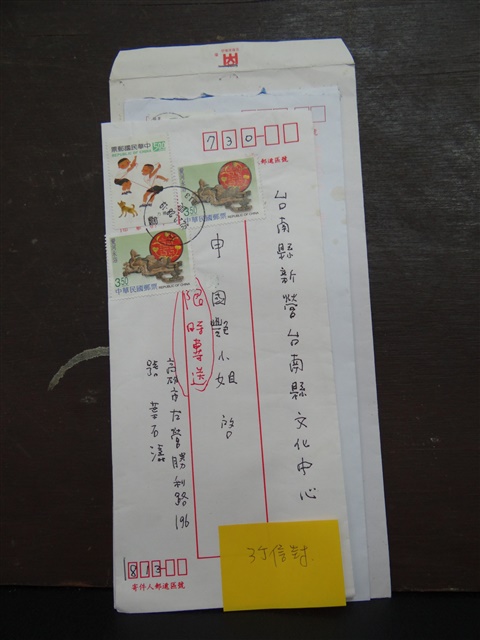 730
郵遞區號
台南縣新營台南縣文化中心
申國艷小姐 啓
限時專送
高雄市左營勝利路196
號 葉石濤
813
寄件人郵遞區號
中華民國郵票
REPUBLIC OF CHINA
5.00
3.50
中華民國郵票
REPUBLIC OF CHINA
3.50
中華民國郵票
REPUBLIC OF CHINA
3个信封